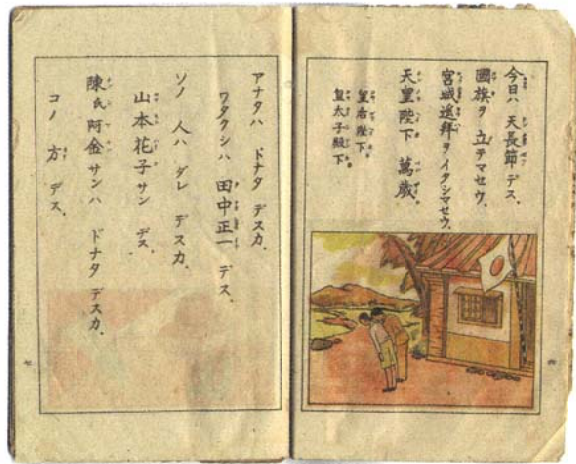 今日ハ 天長節 デス。
國旗ヲ 立テマセウ。
宮城遙拜ヲ イタシマセウ。
天皇陛下 萬歳。
皇后陛下。
皇太子殿下。
アナタハ ドナタ デスカ。
ワタクシハ 田中正一 デス。
ソノ 人ハ ダレ デスカ。
山本花子サン デス。
陳氏阿金サンハ ドナタ デスカ。
コノ 方 デス。